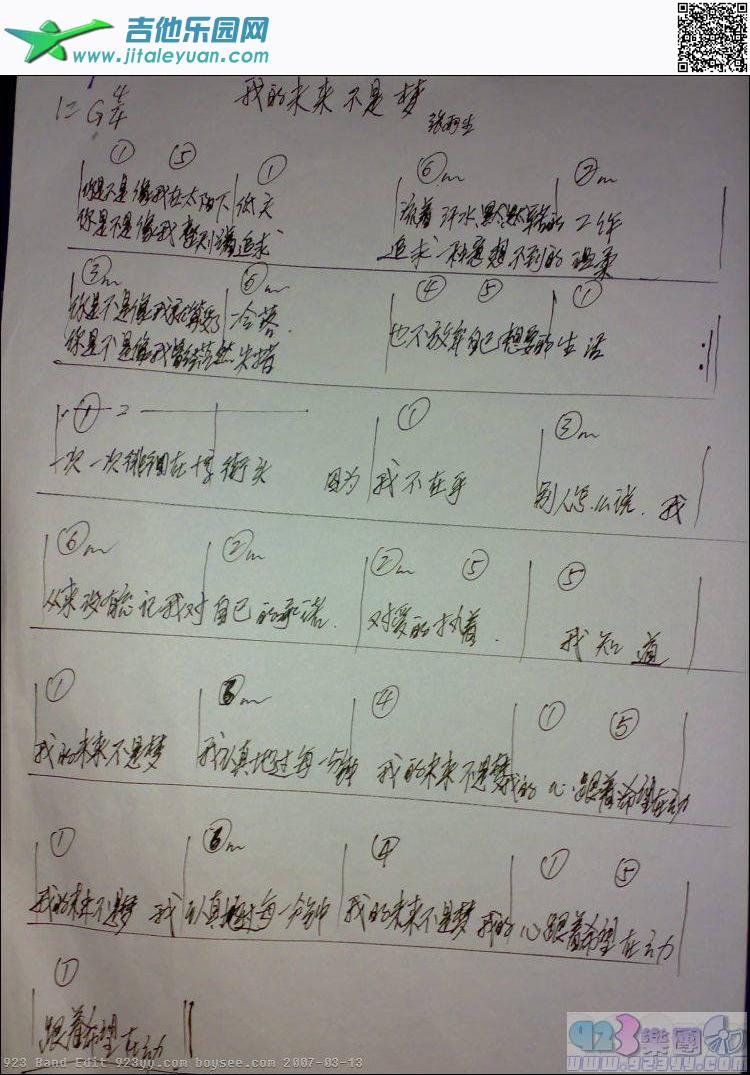 吉他乐园网
www.jitaleyuan.com
我的未来不是梦
1=G 4/4
张雨生
① ⑤ ① ⑥m ②m
你是不是像我在太阳下低头 流着汗水默默辛苦的工作
你是不是像我整天 追求 追求一种意想不到的温柔
③m ⑥m ④ ⑤ ①
你是不是像我就算 冷落 也不放弃自己想要的生活
你是不是像我曾经茫然失措
① ① ③m
一次一次徘徊在十字街头 因为我不在乎 别人怎么说 我
⑥m ②m ②m ⑤ ⑤
从来没有忘记我对自己的承诺 对爱的执着 我知道
① ③m ④ ① ⑤
我的未来不是梦 我认真地过每一分钟 我的未来不是梦 我的心跟着希望在动
① ③m ④ ① ⑤
我的未来不是梦 我认真 过每一分钟 我的未来不是梦 我的心跟着希望在动
①
跟着希望在动
923 Band Edit 923yy.com boysee.com 2007-03-13
923樂團
www.923yy.com